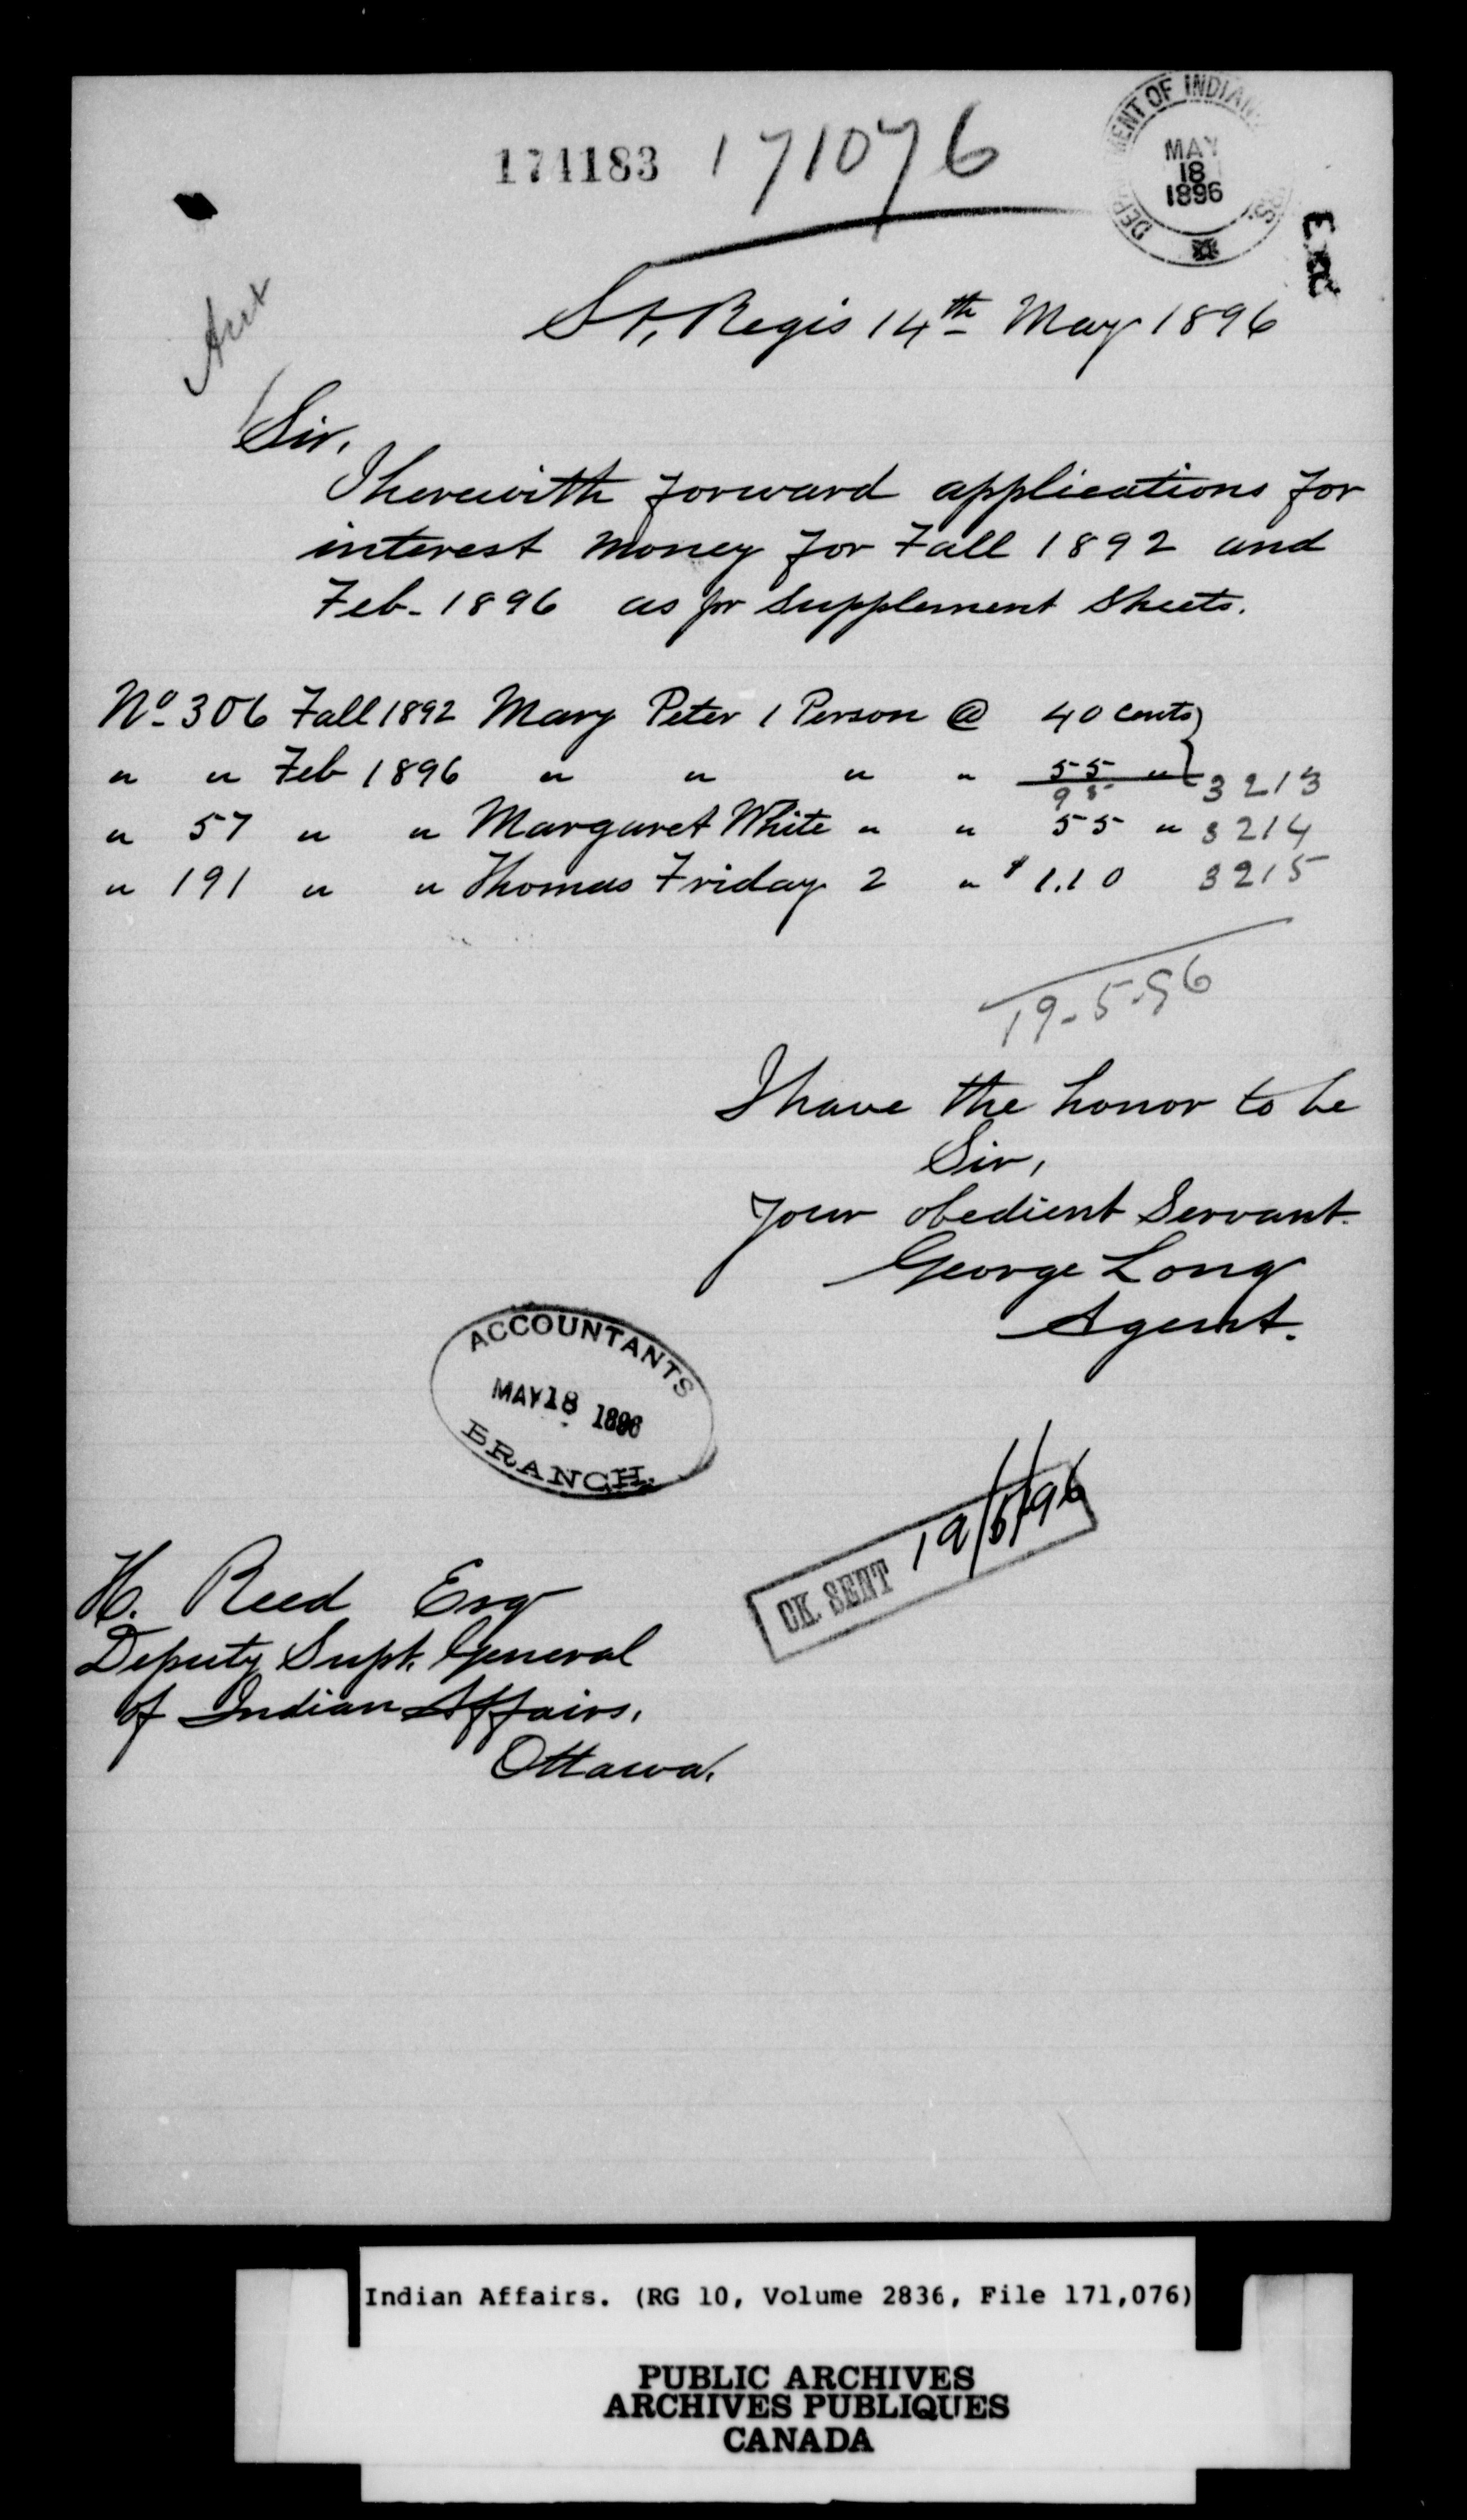 174183 171076
DEPARTMENT OF INDIAN
MAY
18
1896
St. Regis 14th May 1896
Sir,
I herewith forward applications for
interest money for Fall 1892 and
Feb. 1896 as pr Supplement Sheets.
No 306 Fall 1892 Mary Peter 1 Person @ 40 cents
" " Feb 1896 " " " " 55 " 3213
95
" 57 " " Margaret White " " 55 " 3214
" 191 " " Thomas Friday 2 " $1.10 3215
19-5-96
I have the honor to be
Sir,
Your obedient Servant.
George Long
Agent.
ACCOUNTANTS
MAY 18 1896
BRANCH.
CK. SENT 19/5/96
H. Reed Esq
Deputy Supt. General
of Indian Affairs.
Ottawa.
Indian Affairs. (RG 10, Volume 2836, File 171,076)
PUBLIC ARCHIVES
ARCHIVES PUBLIQUES
CANADA